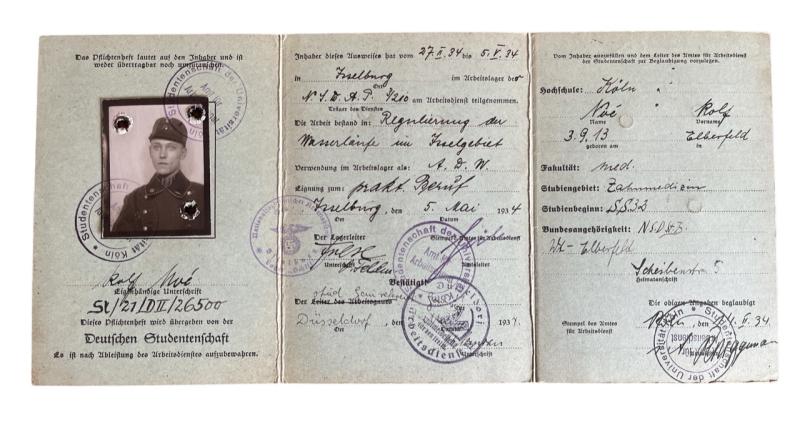 Das Pflichtenheft lautet auf den Inhaber und ist
weder übertragbar noch umzutauschen.
Studentenschaft der Universität Köln
Amt für
Studentenschaft
Rolf Noé
Eigenhändige Unterschrift
St/21/DII/26500
Dieses Pflichtenheft wird übergeben von der
Deutschen Studentenschaft
Es ist nach Ableistung des Arbeitsdienstes aufzubewahren.
Inhaber dieses Ausweises hat vom 27.II.34 bis 5.V.34
in Isselburg im Arbeitslager der
Ort
N.S.D.A.P. 4/210 am Arbeitsdienst teilgenommen.
Träger des Dienstes
Die Arbeit bestand in: Regulierung der
Wasserläufe im Isselgebiet
Verwendung im Arbeitslager als: A.D.W.
Eignung zum: prakt. Beruf
Isselburg, den 5. Mai 1934
Ort Datum
Der Lagerleiter
Unterschrift
Bestätigt
Der Leiter des Arbeitsgaues
Düsseldorf, den 1934
Ort
Unterschrift
Vom Inhaber auszufüllen und dem Leiter des Amtes für Arbeitsdienst
der Studentenschaft zur Beglaubigung vorzulegen.
Hochschule: Köln
Noé Rolf
Name Vorname
3.9.13 Elberfeld
geboren am in
Fakultät: med.
Studiengebiet: Zahnmedizin
Studienbeginn: SS.32
Bundesangehörigkeit: NSDStB
W.-Elberfeld
Scheibenstr. 5
Heimatanschrift
Die obigen Angaben beglaubigt
Stempel des Amtes Köln, den II.34
für Arbeitsdienst
Studentenschaft der Universität Köln